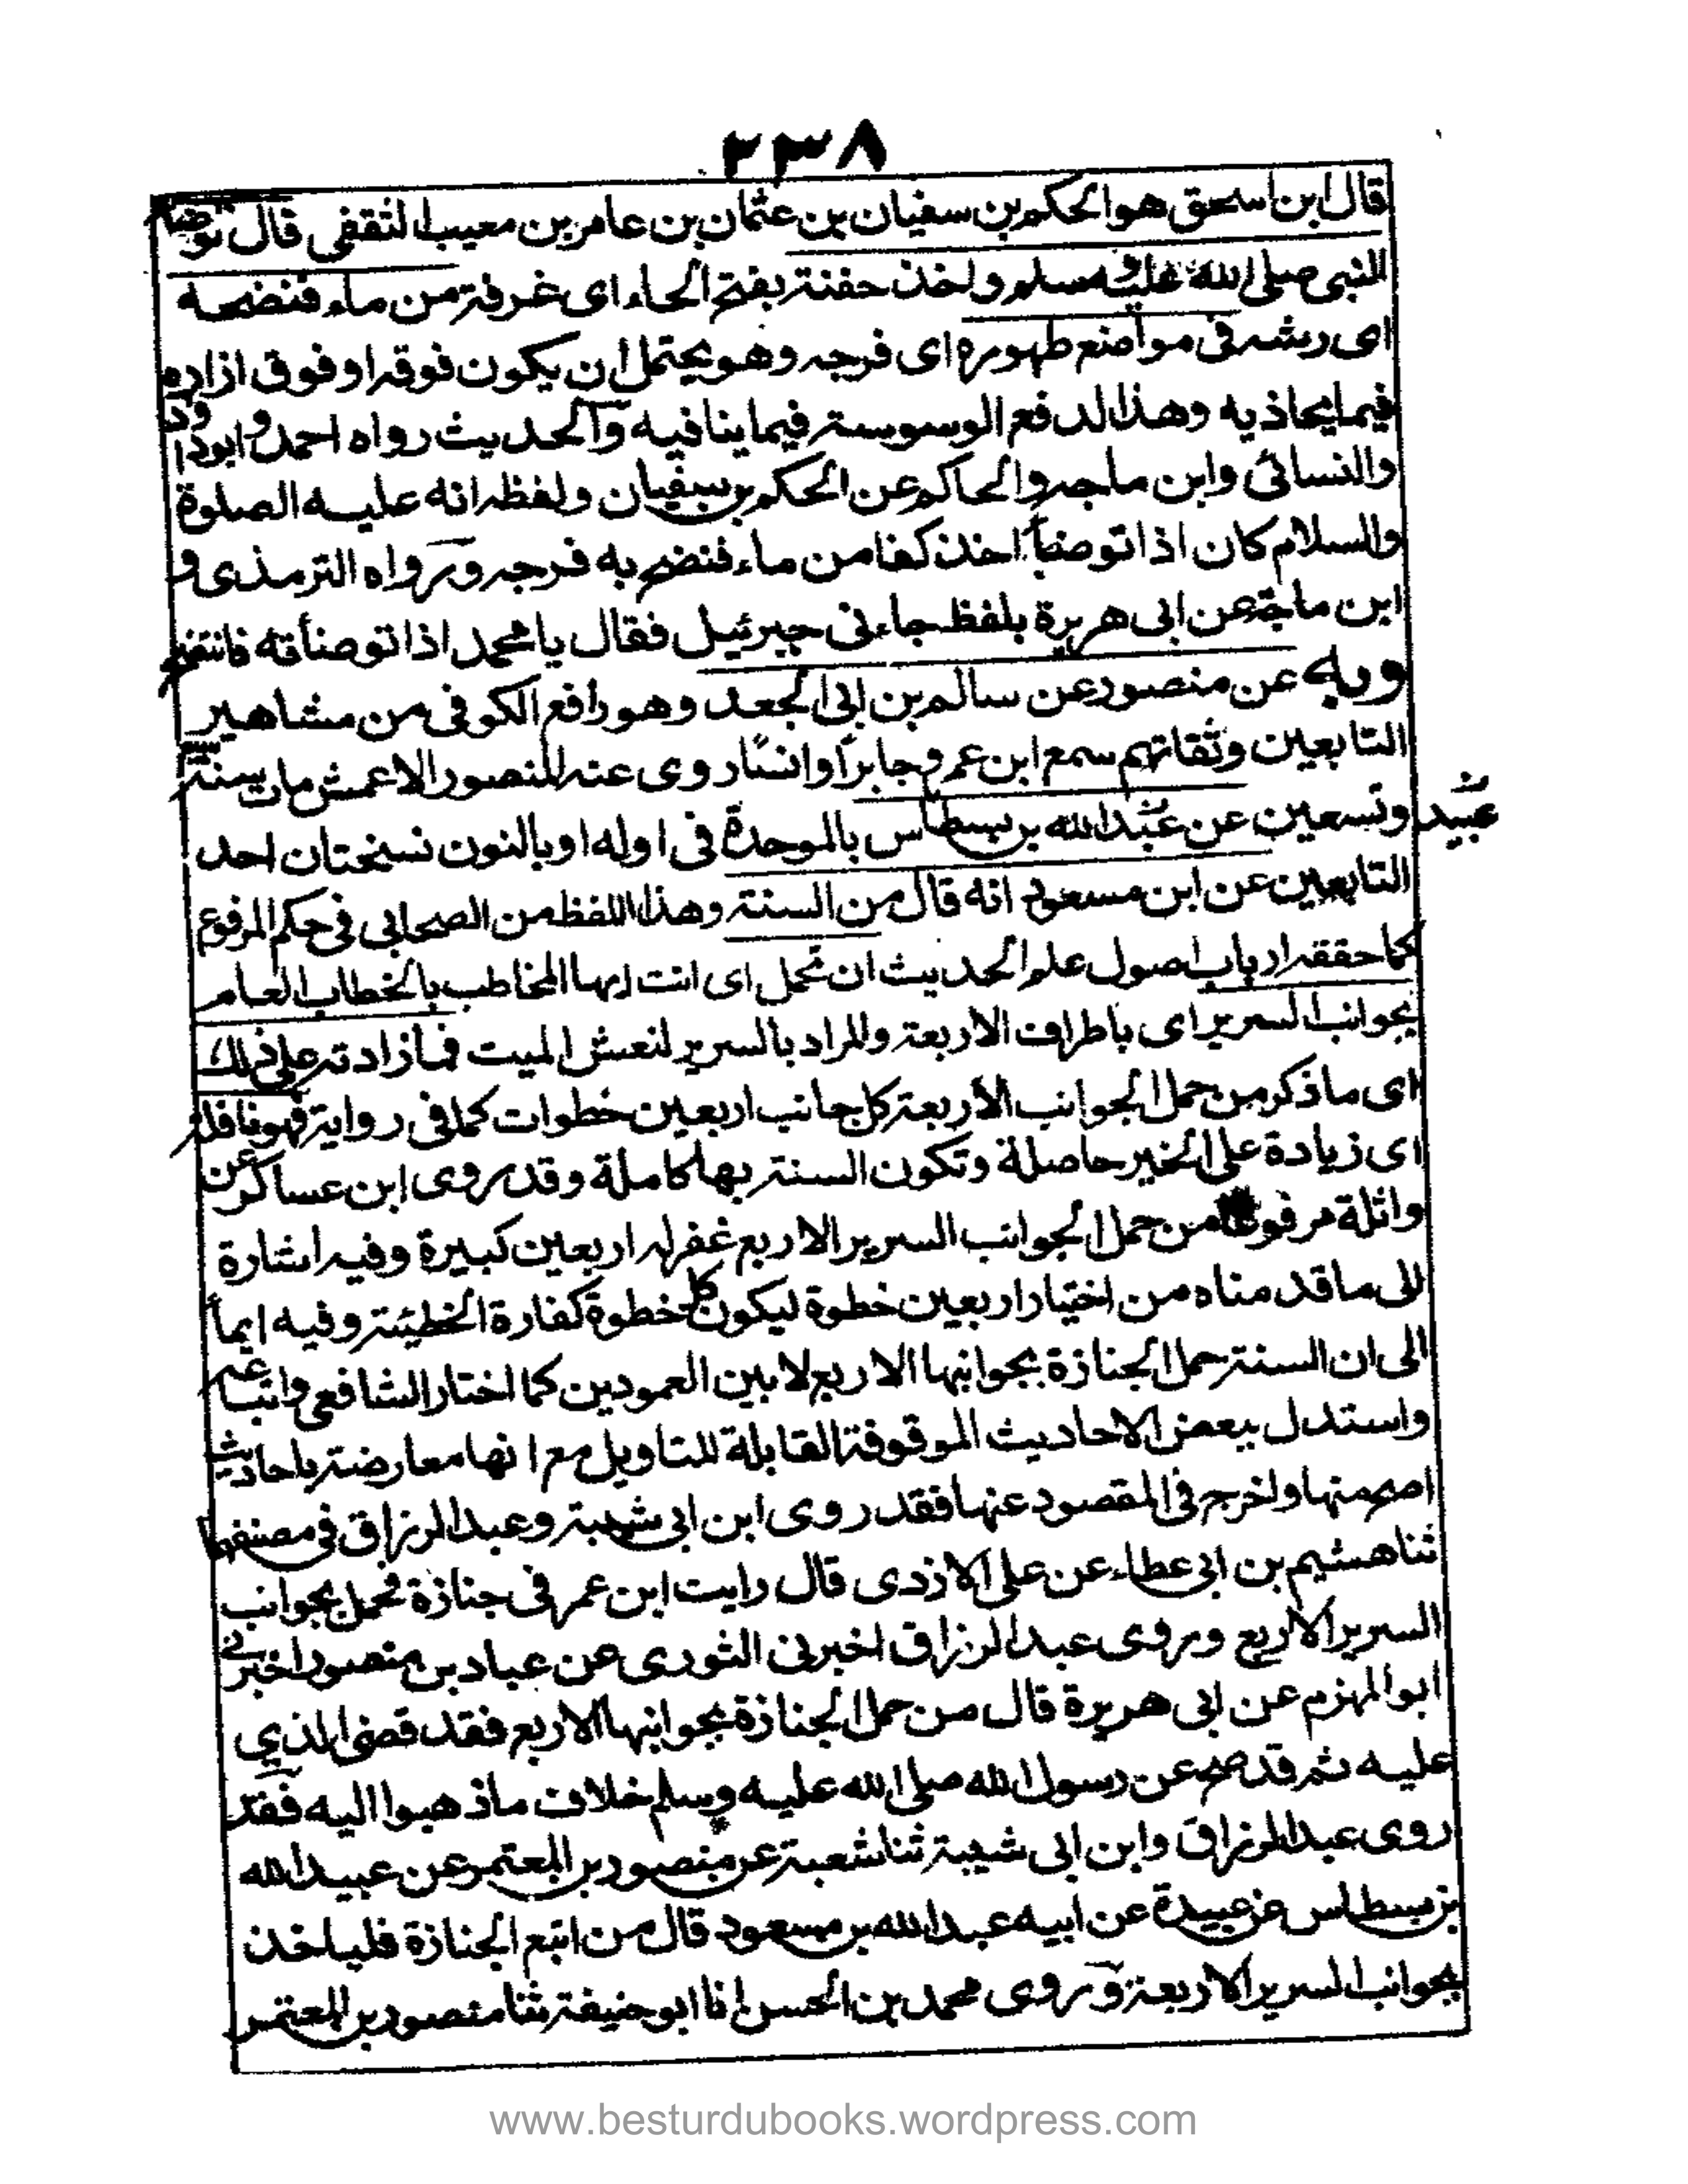 ٢٣٨
قال ابن اسحق هو الحكم بن سفيان بن عثمان بن عامر بن معيب الثقفى قال توضأ
النبى صلى الله عليه وسلم واخذ حفنة بفتح الحاء اى غرفة من ماء فنضحه
اى رشه فى مواضع طهوره اى فرجه وهو يحتمل ان يكون فوقه او فوق ازاره
فيما يحاذيه وهذا لدفع الوسوسة فيما ينافيه والحديث رواه احمد وابوداود
والنسائى وابن ماجه والحاكم عن الحكم بن سفيان ولفظه انه عليه الصلوة
والسلام كان اذا توضأ اخذ كفا من ماء فنضح به فرجه ورواه الترمذى و
ابن ماجة عن ابى هريرة بلفظ جاءنى جبرئيل فقال يا محمد اذا توضأت فانتضح
وبه عن منصور عن سالم بن ابى الجعد وهو رافع الكوفى من مشاهير
التابعين وثقاتهم سمع ابن عمر وجابرا وانسا روى عنه المنصور الاعمش مات سنة
وتسعين عن عبيد الله بن بسطاس بالموحدة فى اوله او بالنون نسختان احد
عبيد
التابعين عن ابن مسعود انه قال من السنة وهذا اللفظ من الصحابى فى حكم المرفوع
كما حققه ارباب اصول علم الحديث ان تحمل اى انت ايها المخاطب بالخطاب العام
بجوانب السرير اى باطراف الاربعة والمراد بالسرير لنعش الميت فما زادته على ذلك
اى ما ذكر من حمل الجوانب الأربعة كل جانب اربعين خطوات كما فى رواية فهو نافلة
اى زيادة على الخير حاصلة وتكون السنة بها كاملة وقد روى ابن عساكر عن
واثلة مرفوعا من حمل الجوانب السرير الاربع غفر له اربعين كبيرة وفيه اشارة
الى ما قدمناه من اختيار اربعين خطوة ليكون كل خطوة كفارة الخطيئة وفيه ايمأ
الى ان السنة حمل الجنازة بجوانبها الاربع لا بين العمودين كما اختار الشافعى واتباعه
واستدل ببعض الاحاديث الموقوفة القابلة للتاويل مع انها معارضة باحاديث
اصح منها واخرج فى المقصود عنها فقد روى ابن ابى شيبة وعبد الرزاق فى مصنفهما
ثنا هشيم بن ابى عطاء عن على الازدى قال رايت ابن عمر فى جنازة فحمل بجوانب
السرير الاربع وروى عبد الرزاق اخبرنى الثورى عن عباد بن منصور اخبرنى
ابو المهزم عن ابى هريرة قال من حمل الجنازة بجوانبها الاربع فقد قضى الذي
عليه ثم قد صح عن رسول الله صلى الله عليه وسلم خلاف ما ذهبوا اليه فقد
روى عبد الرزاق وابن ابى شيبة ثنا شعبة عن منصور بن المعتمر عن عبيد الله
بن بسطاس عن عبيدة عن ابيه عبد الله بن مسعود قال من اتبع الجنازة فلياخذ
بجوانب السرير الاربعة وروى محمد بن الحسن انا ابو حنيفة ثنا منصور بن المعتمر
www.besturdubooks.wordpress.com